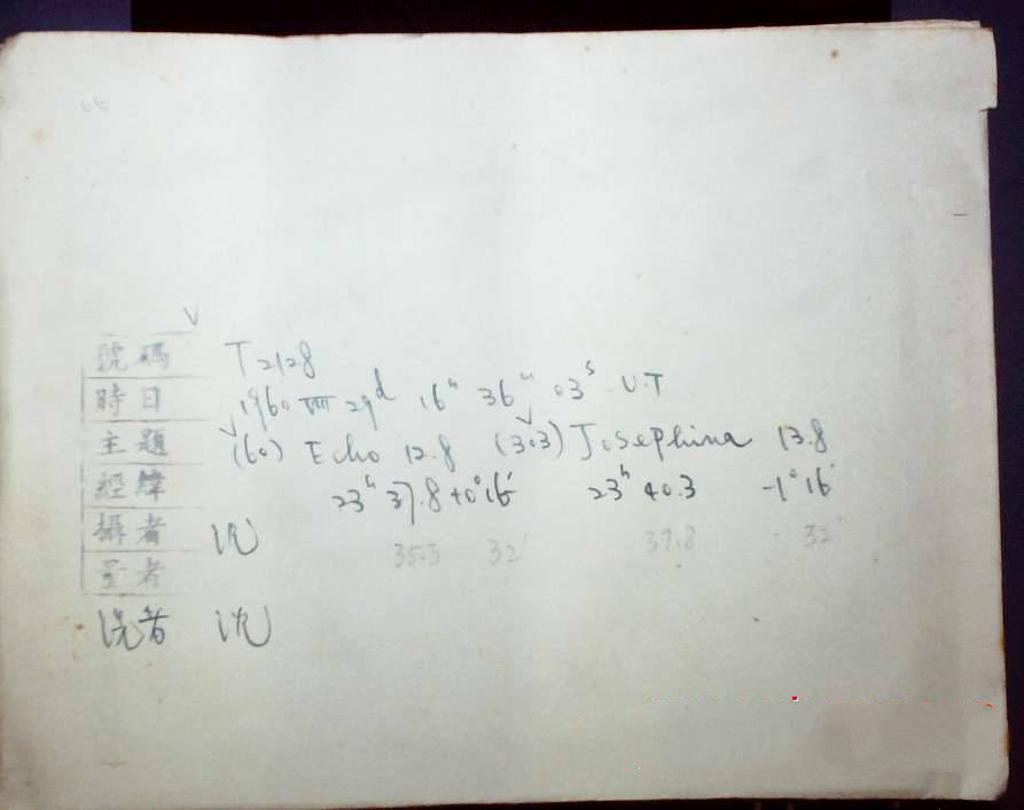 號碼 T2128
時日 1960 VIII 29d 16h 36m 03s U.T
主題 (60) Echo 12.8 (303) Josephina 13.8
經緯 23h 37.8 +0°16' 23h 40.3 -1°16'
攝者 沈
35.3 32' 37.8 32'
量者
洗者 沈